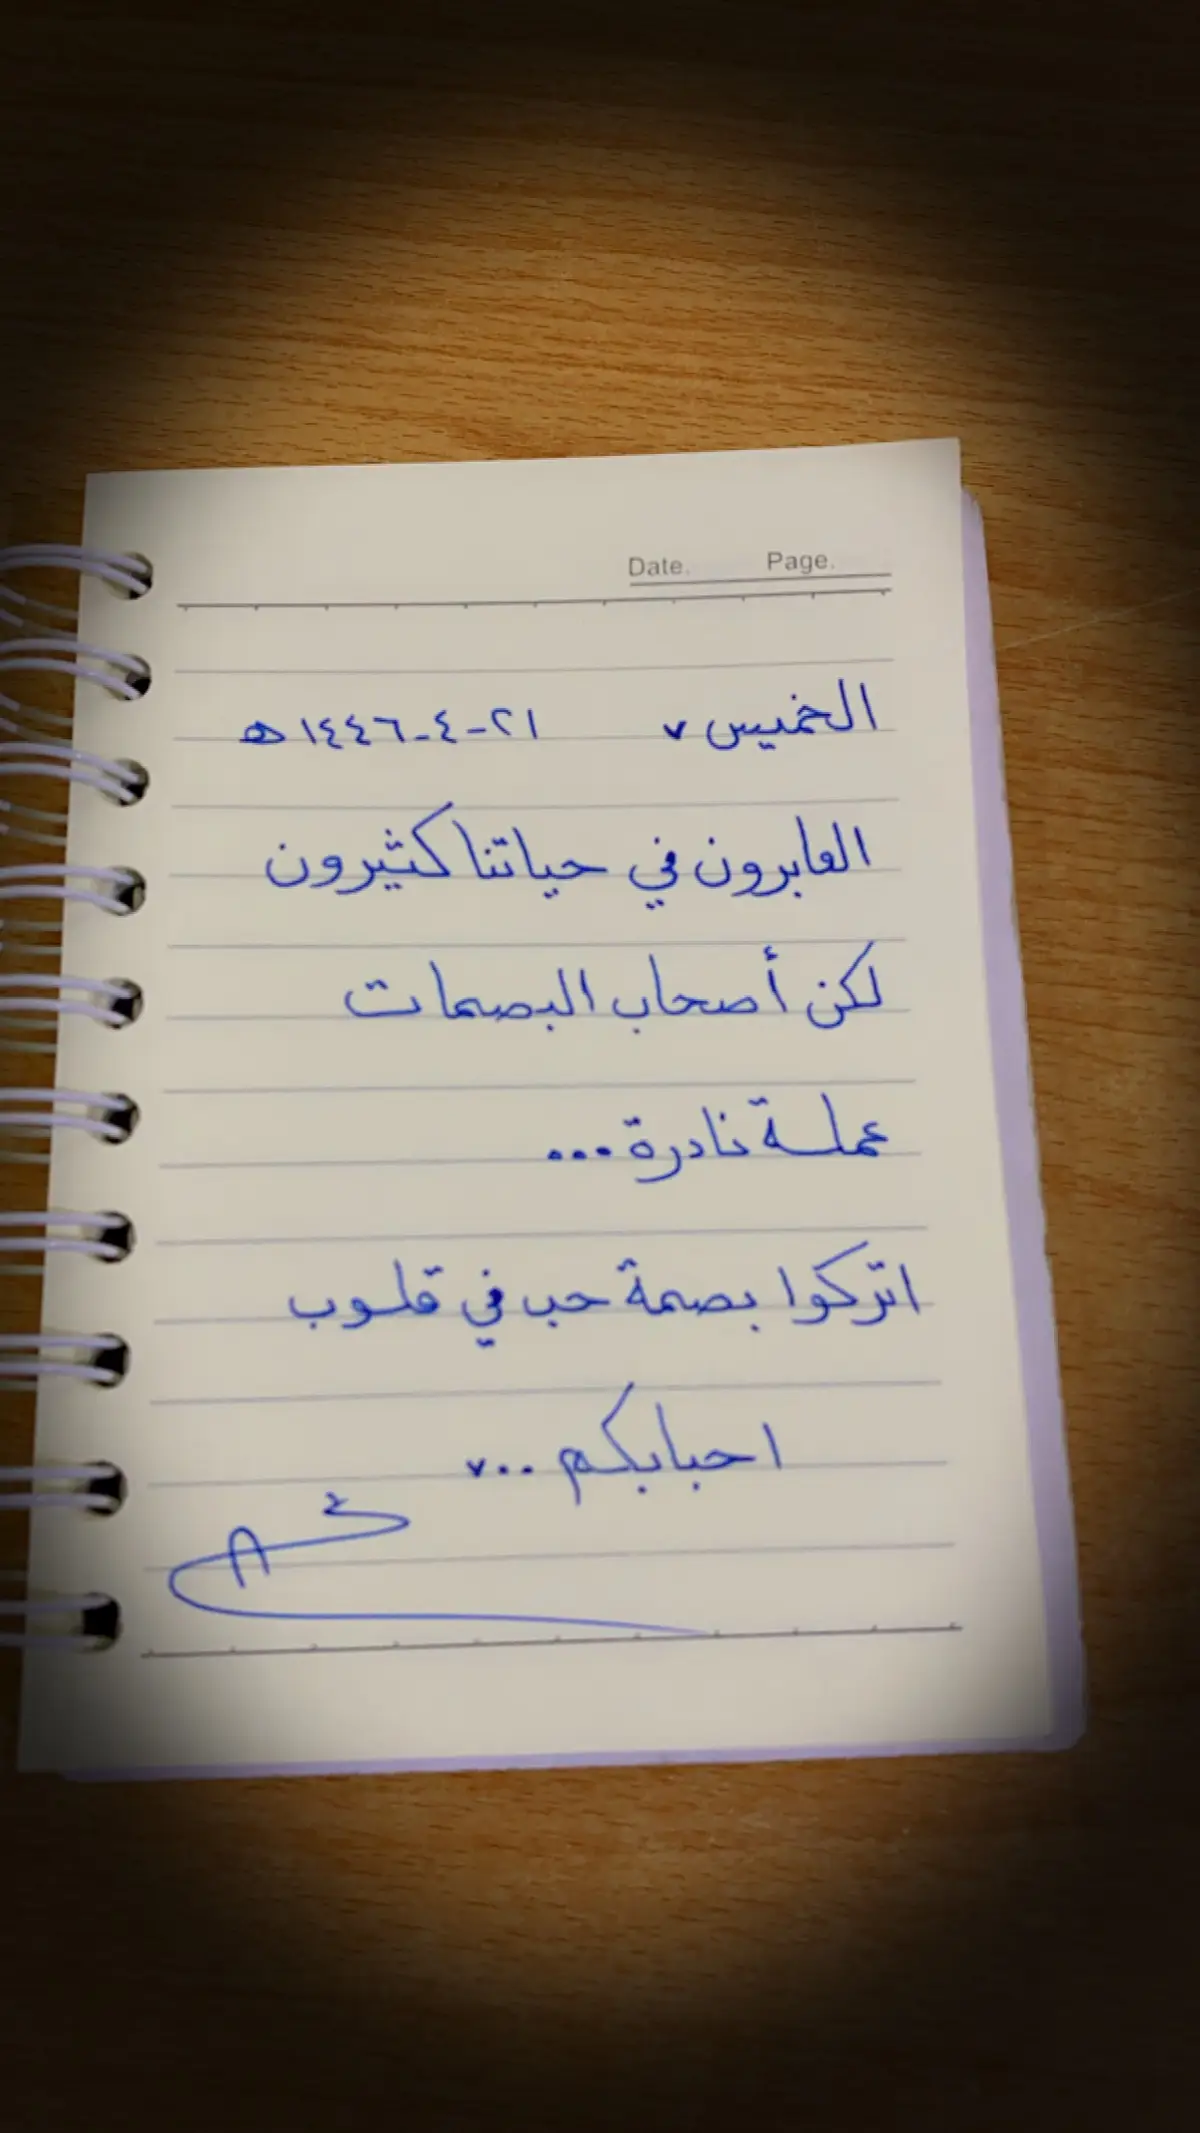 Date. Page.
الخميس ٢١-٤-١٤٤٦ھ
العابرون في حياتنا كثيرون
لكن أصحاب البصمات
عملة نادرة ...
اتركوا بصمة حب في قلوب
احبابكم ..